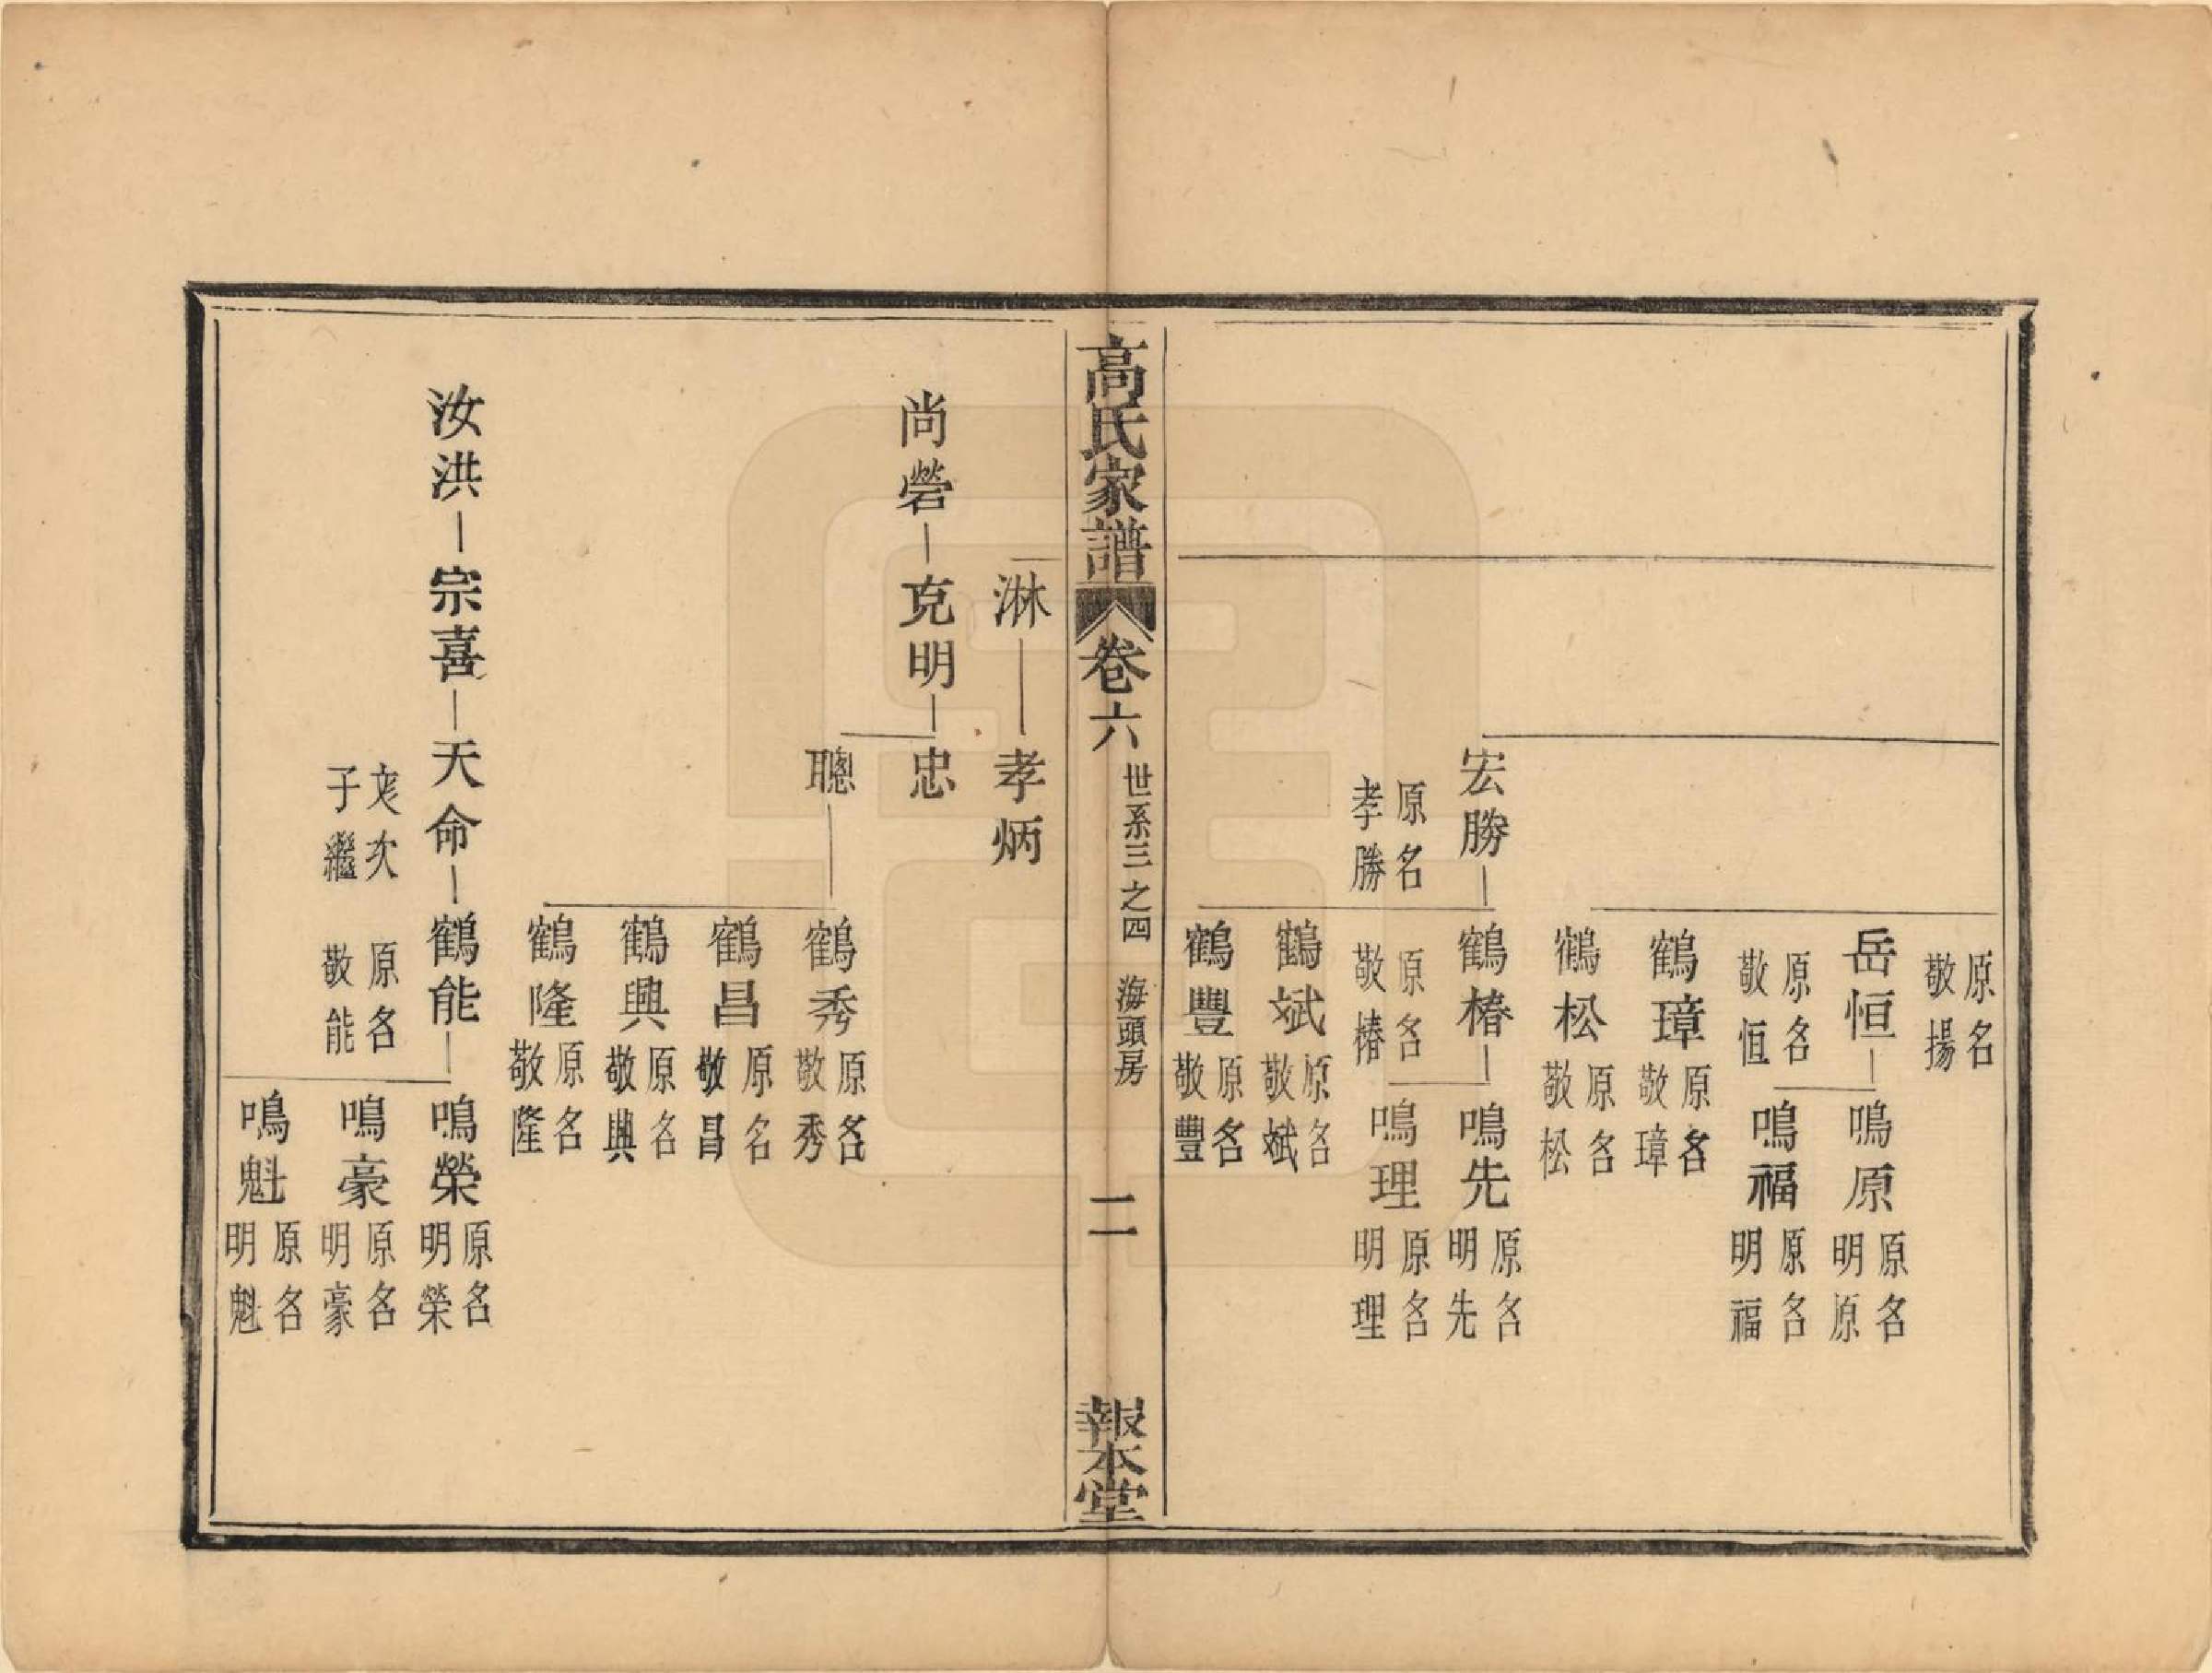 原名
敬揚
岳恒
原名
敬恒
鳴原
原名
明原
鳴福
原名
明福
鶴璋
原名
敬璋
鶴松
原名
敬松
宏勝
原名
孝勝
鶴椿
原名
敬椿
鳴先
原名
明先
鳴理
原名
明理
鶴斌
原名
敬斌
鶴豐
原名
敬豐
高氏家譜
卷六
世系三之四 海頭房
二
報本堂
淋
孝炳
尚礬
克明
忠
聰
鶴秀
原名
敬秀
鶴昌
原名
敬昌
鶴興
原名
敬興
鶴隆
原名
敬隆
汝洪
宗喜
天命
次
子繼
鶴能
原名
敬能
鳴榮
原名
明榮
鳴豪
原名
明豪
鳴魁
原名
明魁